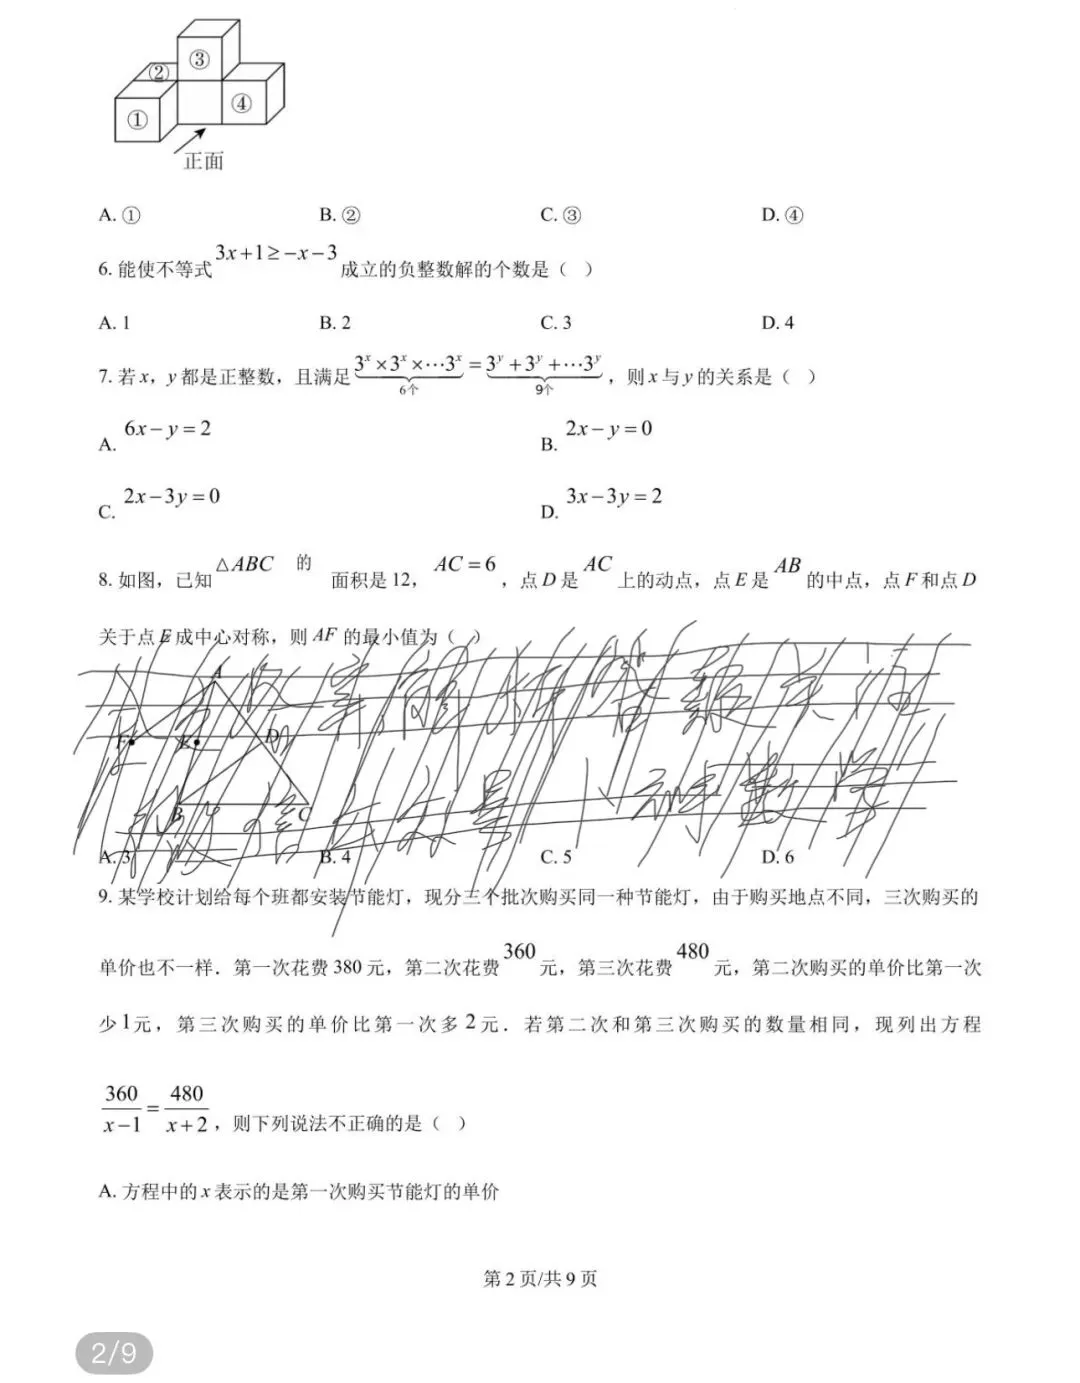 ③
②
④
①
正面
A. ① B. ② C. ③ D. ④
6. 能使不等式 3x+1≥-x-3 成立的负整数解的个数是（ ）
A. 1 B. 2 C. 3 D. 4
7. 若 x，y 都是正整数，且满足 3^x×3^x×⋯3^x = 3^y+3^y+⋯3^y，则 x 与 y 的关系是（ ）
6个 9个
A. 6x-y=2 B. 2x-y=0
C. 2x-3y=0 D. 3x-3y=2
8. 如图，已知 △ABC 的 面积是 12， AC=6 ，点 D 是 AC 上的动点，点 E 是 AB 的中点，点 F 和点 D
关于点 E 成中心对称，则 AF 的最小值为（ ）
A
F E D
B C
A. 3 B. 4 C. 5 D. 6
9. 某学校计划给每个班都安装节能灯，现分三个批次购买同一种节能灯，由于购买地点不同，三次购买的
单价也不一样．第一次花费 380 元，第二次花费 360 元，第三次花费 480 元，第二次购买的单价比第一次
少 1 元，第三次购买的单价比第一次多 2 元．若第二次和第三次购买的数量相同，现列出方程
360/(x-1) = 480/(x+2) ，则下列说法不正确的是（ ）
A. 方程中的 x 表示的是第一次购买节能灯的单价
第 2 页/共 9 页
2/9